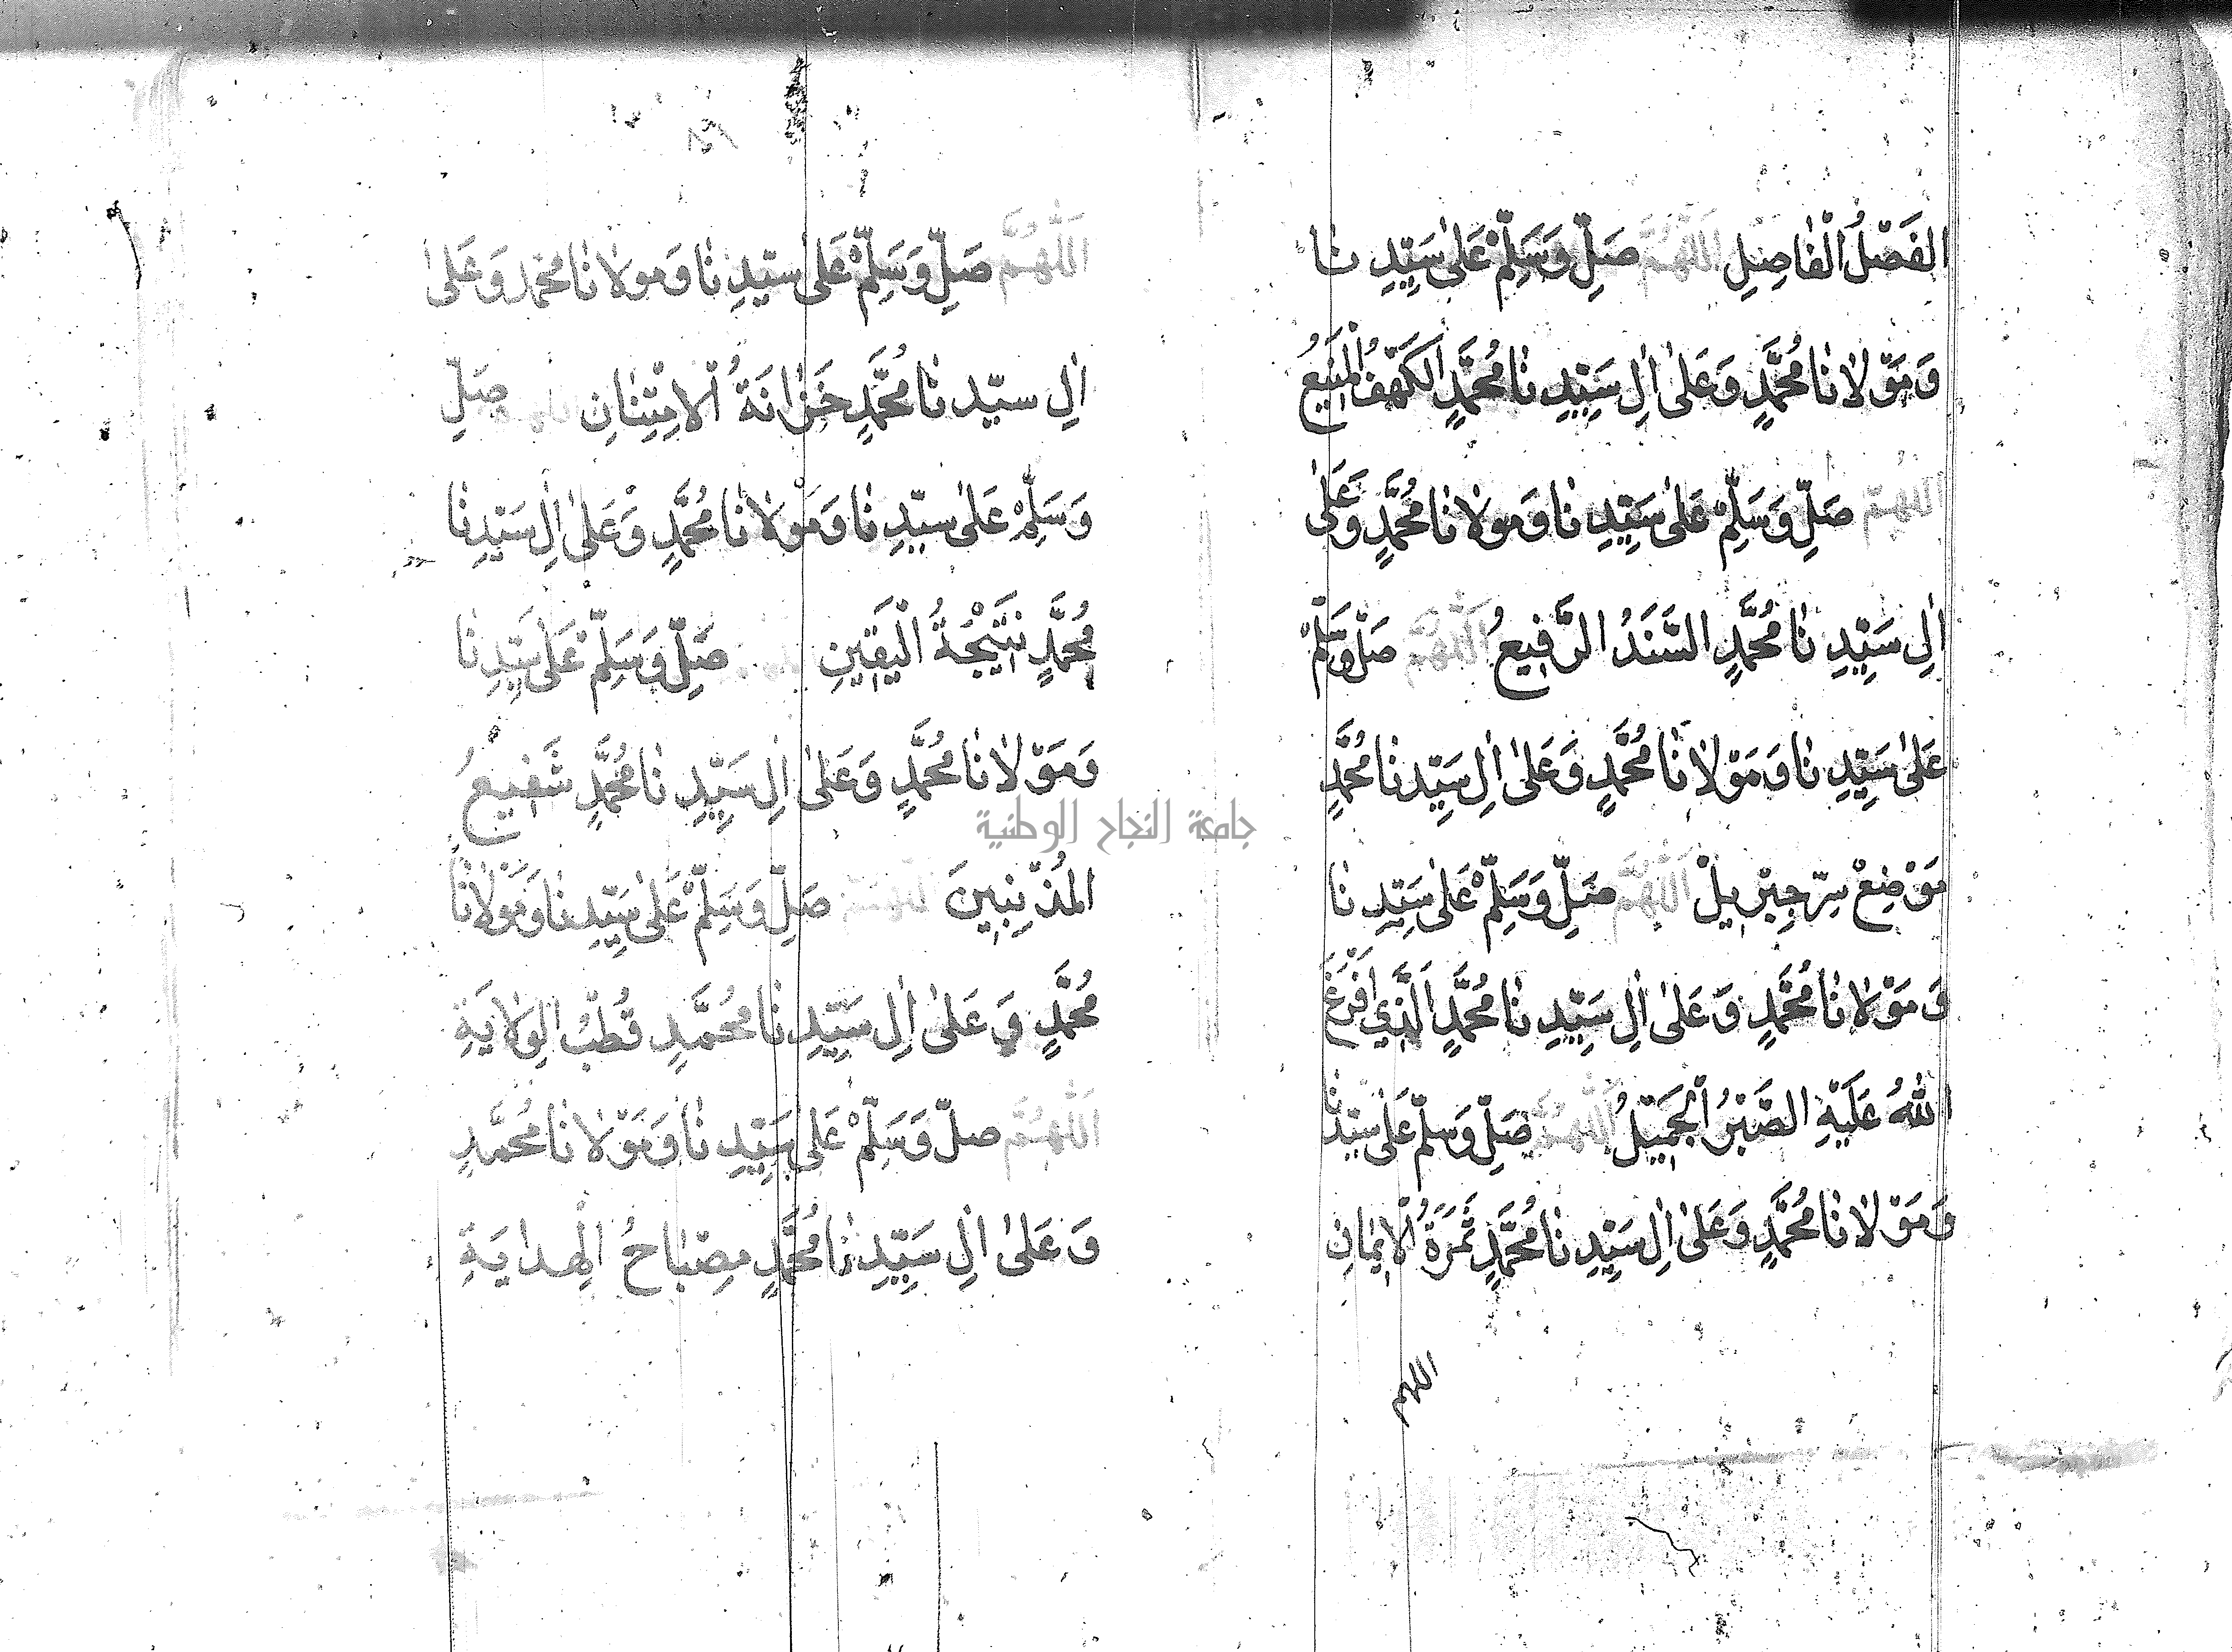 الفَصْلُ الْفَاصِلِ اللَّهُمَّ صَلِّ وَسَلِّمْ عَلَىٰ سَيِّدِنَا
وَمَوْلَانَا مُحَمَّدٍ وَعَلَىٰ اٰلِ سَيِّدِنَا مُحَمَّدٍ الكَهْفُ الْمَنِيعُ
اللهُمَّ صَلِّ وَسَلِّمْ عَلَىٰ سَيِّدِنَا وَمَولَانَا مُحَمَّدٍ وَعَلَىٰ
اٰلِ سَيِّدِنَا مُحَمَّدٍ السَّنَدُ الرَّفِيعُ اَللَّهُمَّ صَلِّ وَسَلِّمْ
عَلَىٰ سَيِّدِنَا وَمَوْلَانَا مُحَمَّدٍ وَعَلَىٰ اٰلِ سَيِّدِنَا مُحَمَّدٍ
مَوْضِعْ سِرِّ جِبْرِيلْ اَللَّهُمَّ صَلِّ وَسَلِّمْ عَلَىٰ سَيِّدِنَا
وَمَوْلَانَا مُحَمَّدٍ وَعَلَىٰ اٰلِ سَيِّدِنَا مُحَمَّدٍ الَّذِي اَفْرَغَ
اللهُ عَلَيْهِ الصَّبْرُ الْجَمِيْلُ اللَّهُمَّ صَلِّ وَسَلِّمْ عَلَىٰ سَيِّدِنَا
وَمَوْلَانَا مُحَمَّدٍ وَعَلَىٰ اٰلِ سَيِّدِنَا مُحَمَّدٍ ثَمَرَةُ الْاِيمَانِ
اللهم
١٥٦
اَللَّهُمَّ صَلِّ وَسَلِّمْ عَلَىٰ سيّدِنَا وَمولَانَا محمد وَعَلىٰ
اٰلِ سيّدنَا مُحَمَّدٍ خَزَانَةُ الْامِتِنَانِ اللهم صَلِّ
وَسَلِّمْ عَلَىٰ سيّدِنَا وَمَوْلَانَا مُحَمَّدٍ وَعَلَىٰ اٰلِ سَيّدِنَا
مُحَمَّدٍ نَتِيْجَةُ الْيَقِينِ صَلِّ وَسَلِّمْ عَلَىٰ سَيِّدِنَا
وَمَوْلَانَا مُحَمَّدٍ وَعَلَىٰ اٰلِ سَيِّدِنَا مُحَمَّدٍ شَفِيعُ
المُذْنِبِينَ اللهم صَلِّ وَسَلِّمْ عَلَىٰ سَيِّدِنَا وَمَوْلَانَا
مُحَمَّدٍ وَعَلَىٰ اٰلِ سَيِّدِنَا مُحَمَّدٍ قُطْبُ الوِلَايَةِ
اَللَّهُمَّ صلّ وَسَلِّمْ عَلَىٰ سَيِّدِنَا وَمَوْلَانَا مُحَمَّدٍ
وَعَلَىٰ اٰلِ سَيِّدِنَا مُحَمَّدٍ مِصْبَاحُ الْهِدايَةِ
جامعة النجاح الوطنية